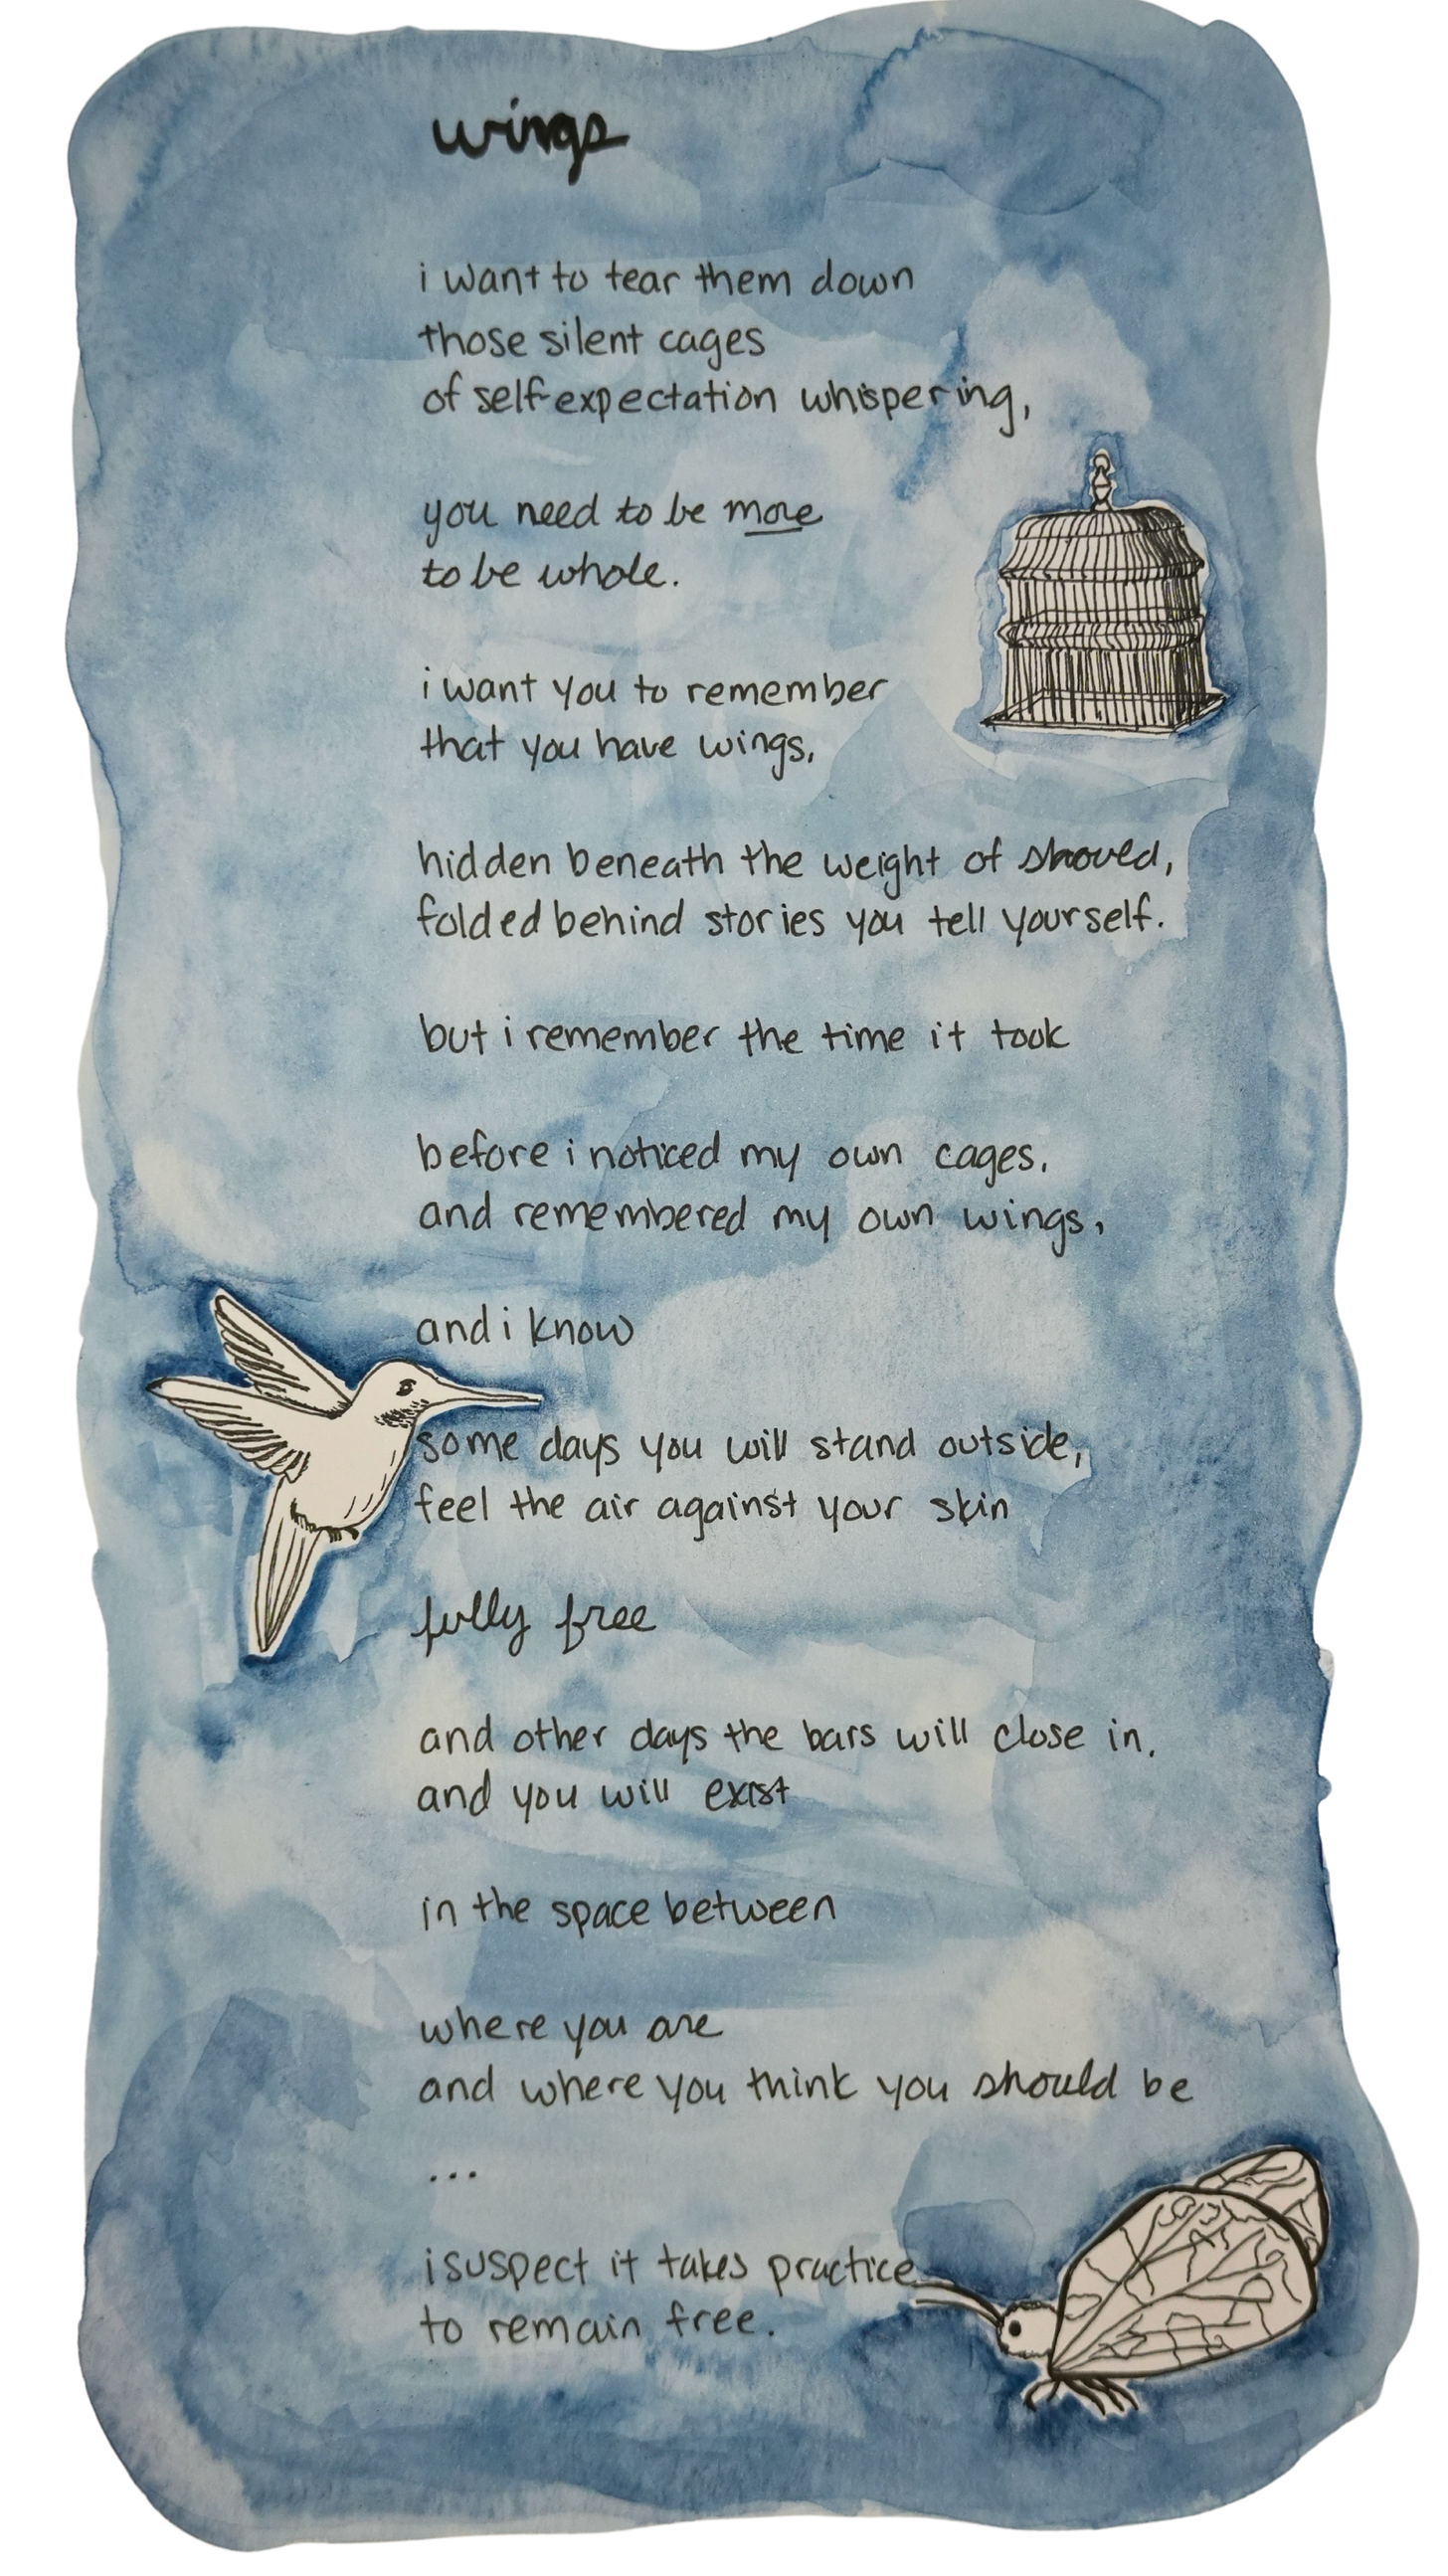 wings
i want to tear them down
those silent cages
of self-expectation whispering,
you need to be more
to be whole.
i want you to remember
that you have wings,
hidden beneath the weight of should,
folded behind stories you tell yourself.
but i remember the time it took
before i noticed my own cages,
and remembered my own wings,
and i know
some days you will stand outside,
feel the air against your skin
fully free
and other days the bars will close in,
and you will exist
in the space between
where you are
and where you think you should be
...
i suspect it takes practice
to remain free.